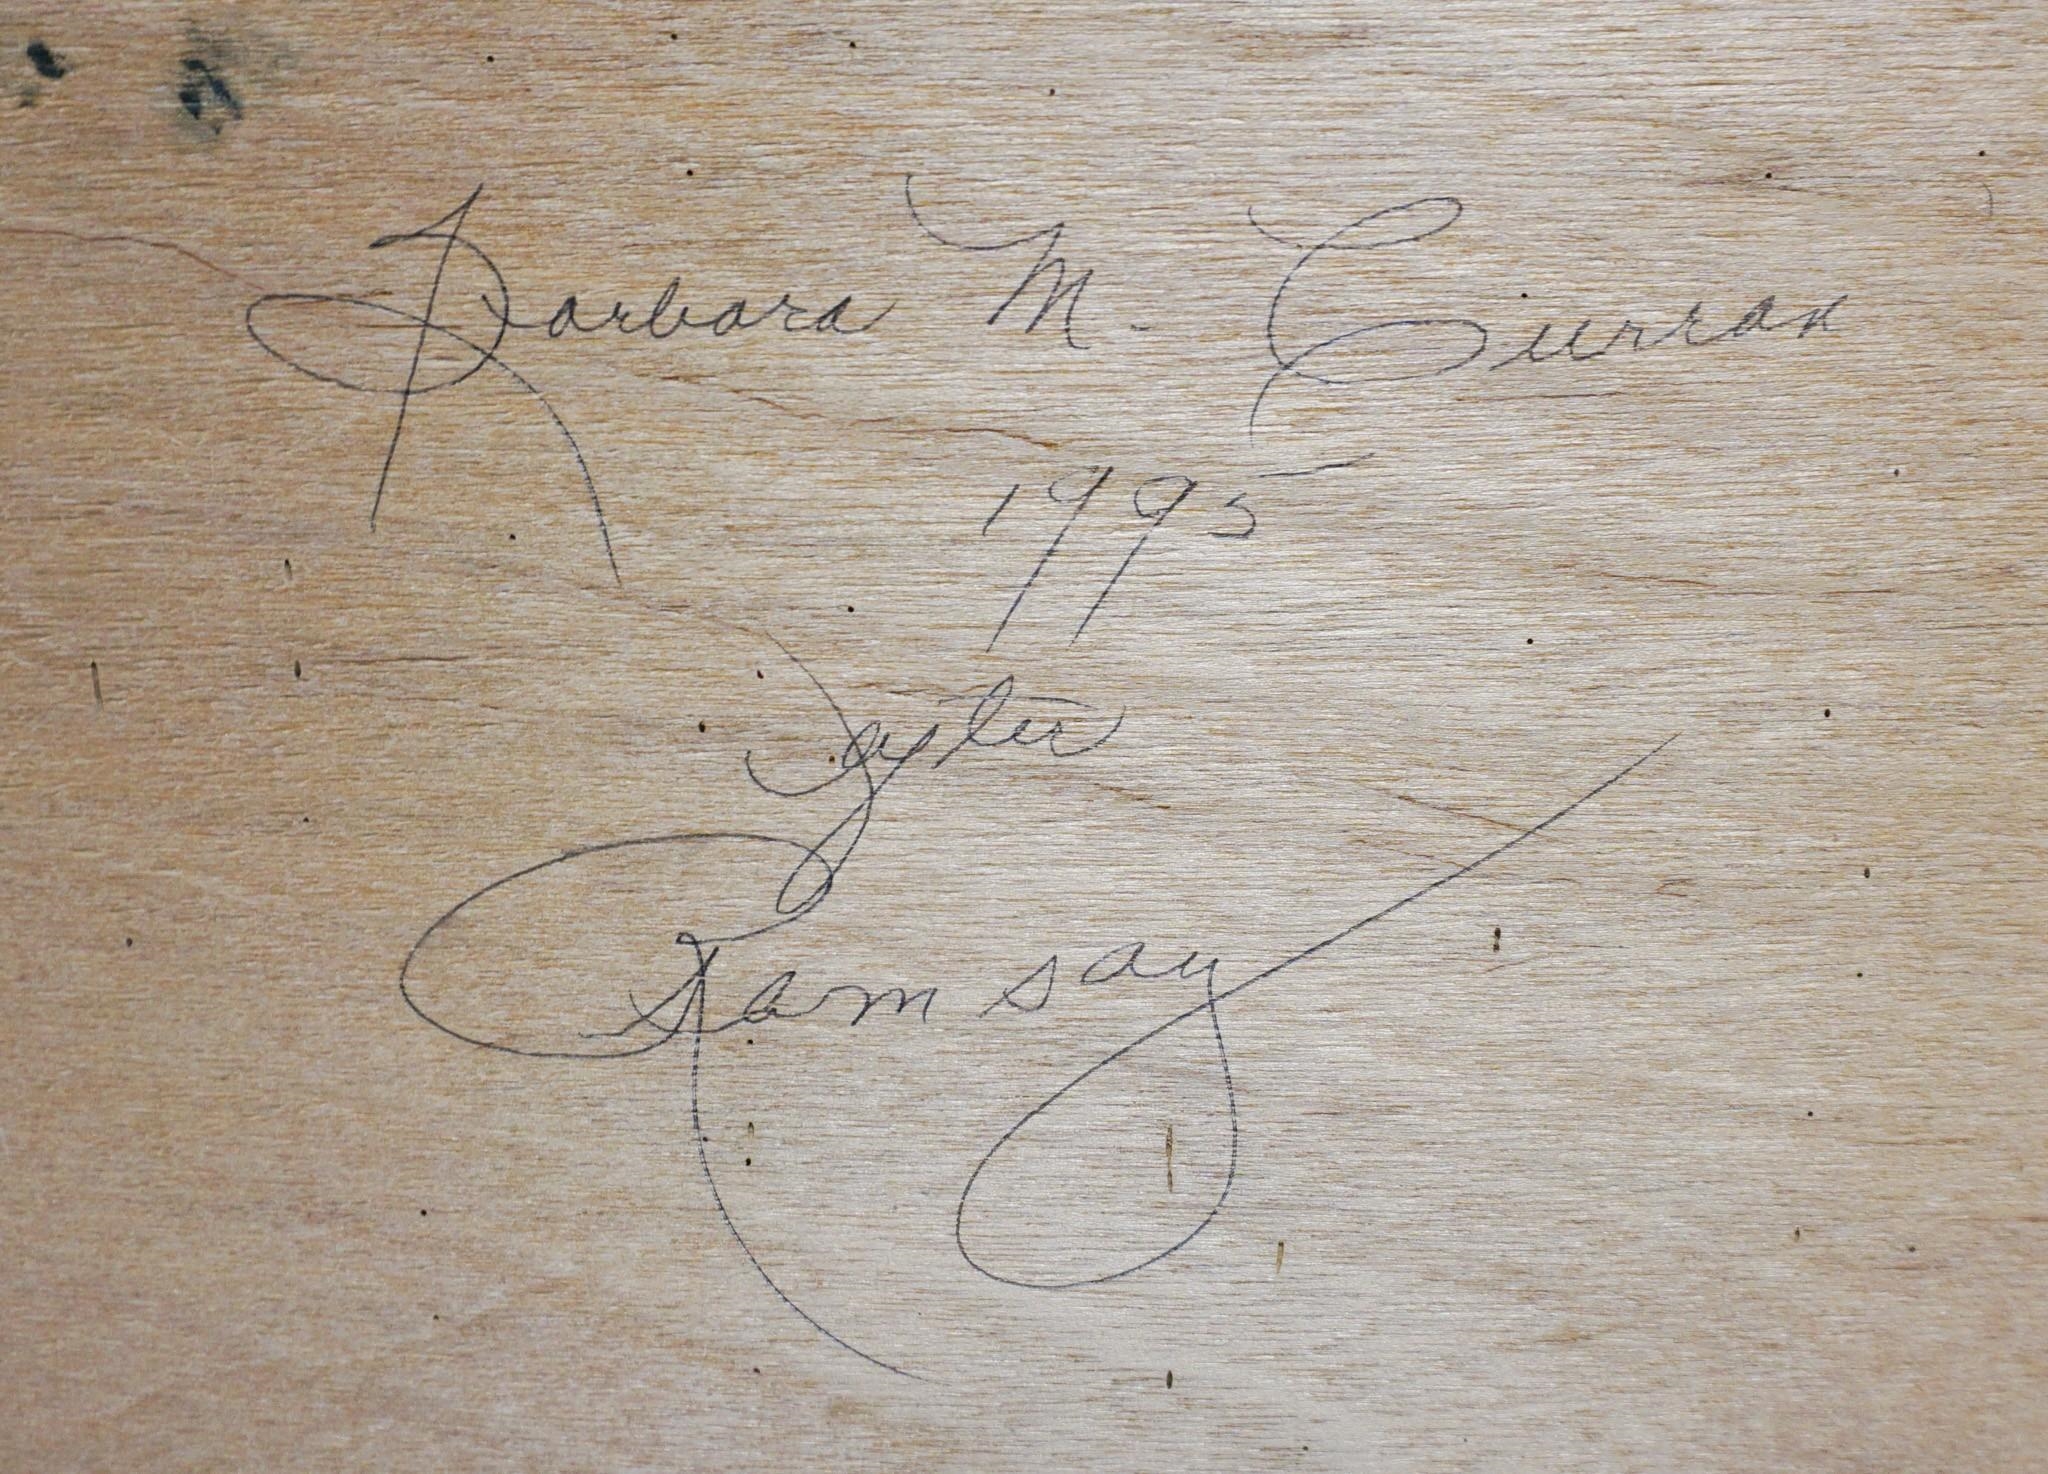 Barbara M. Curran
1995
Ramsay